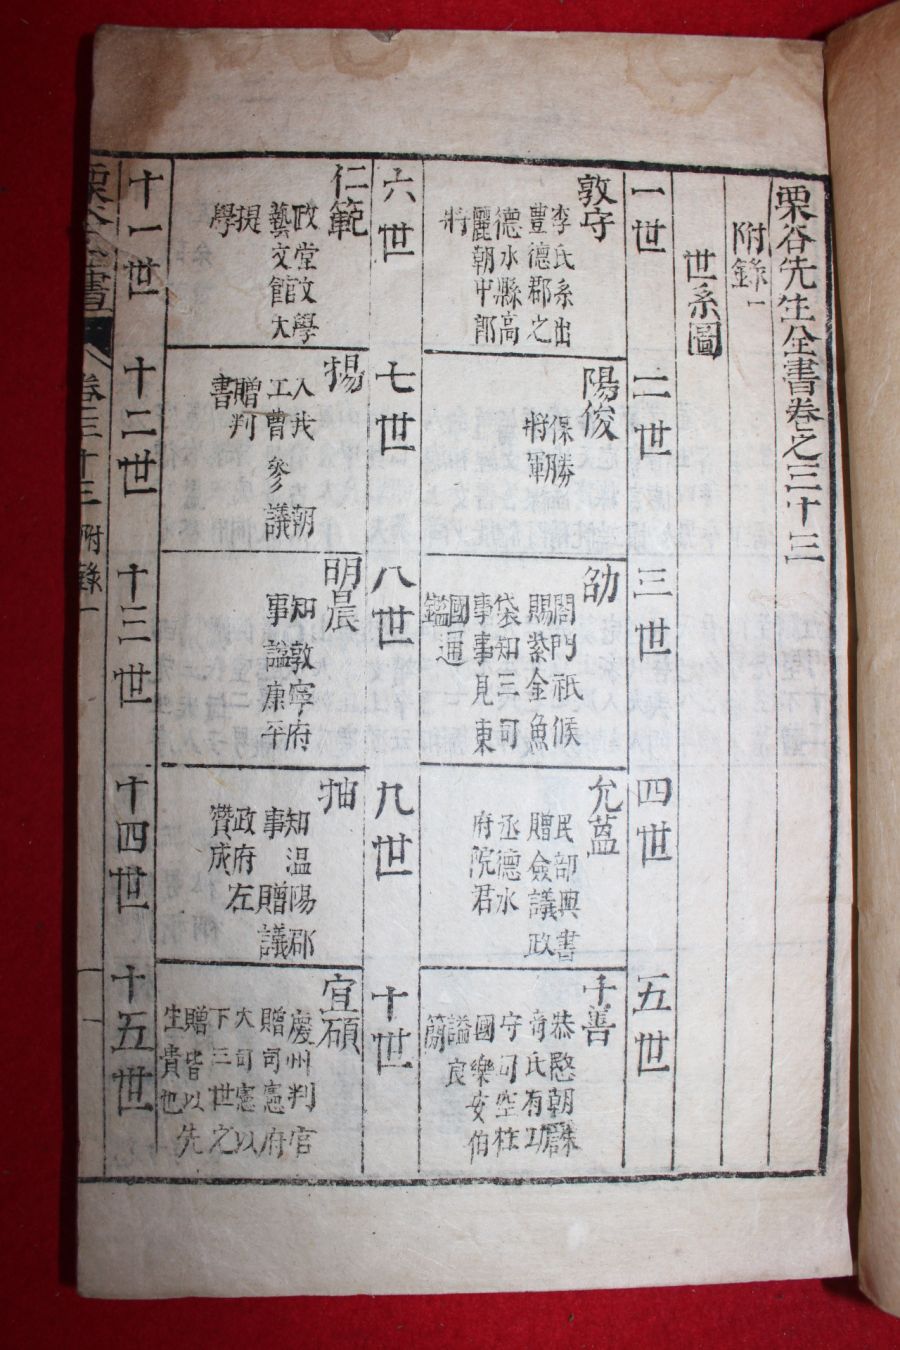 栗谷先生全書卷之三十三
附錄一
世系圖
一世
二世
三世
四世
五世
敦守
李氏系出
豊德郡之
德水縣高
麗朝中郎
將
陽俊
保勝
將軍
劭
閤門祗候
賜紫金魚
袋知三司
事事見東
國通
鑑
允蒀
民部典書
贈僉議政
丞德水
府院君
千善
恭愍朝誅
奇氏有功
守司空柱
國樂安伯
謚良
簡
六世
七世
八世
九世
十世
仁範
政堂文學
藝文館大
提
學
揚
入我 朝
工曹參議
贈判
書
明晨
知敦寧府
事謚康平
抽
知溫陽郡
事 贈議
政府左
贊成
宜碩
慶州判官
贈司憲府
大司憲以
下三世之
贈皆以先
生貴也
十一世
十二世
十三世
十四世
十五世
栗谷全書 卷三十三 附錄一 一